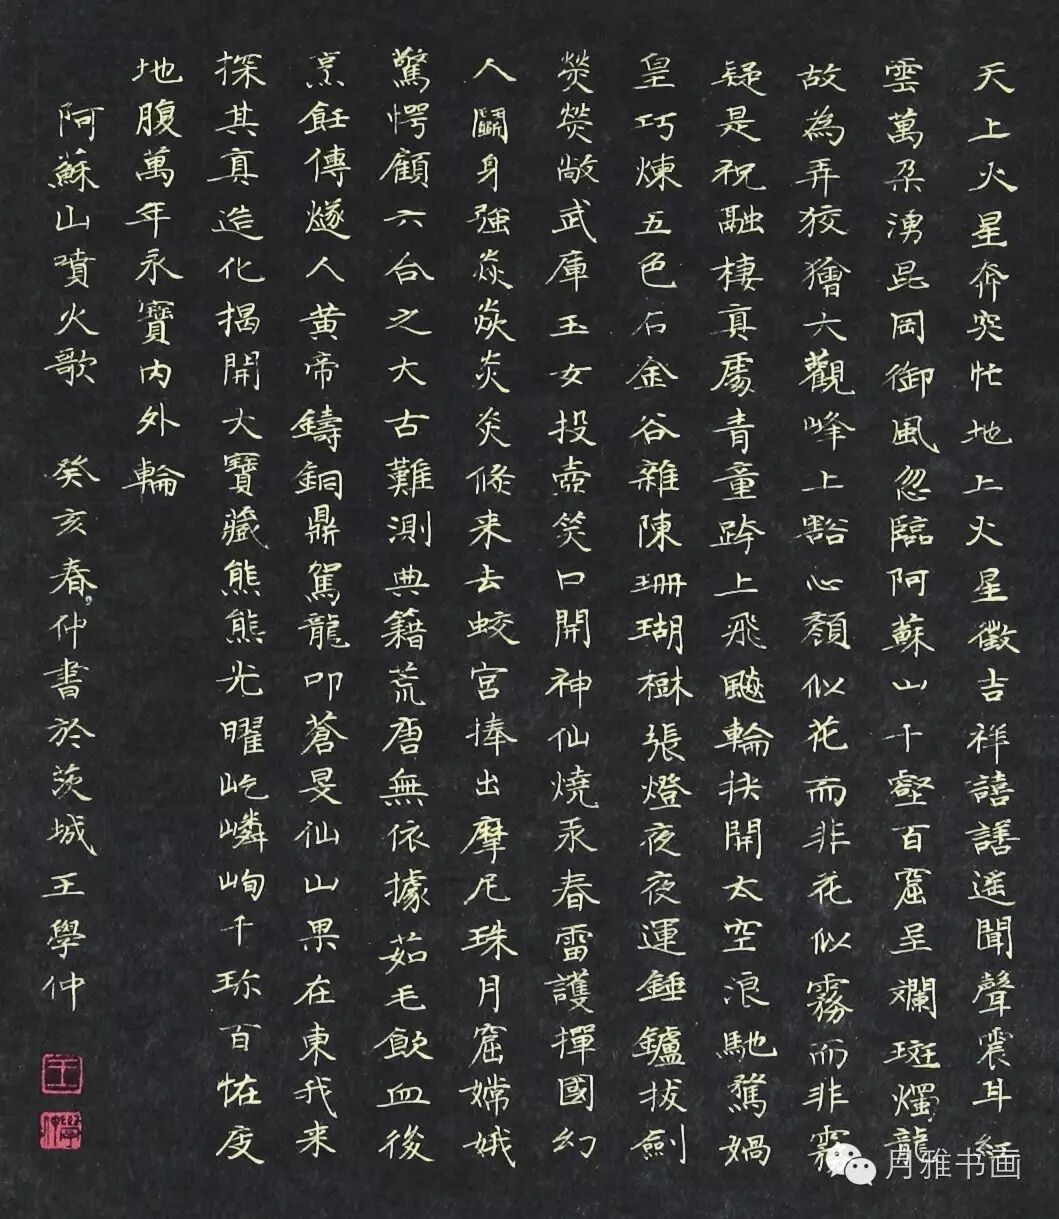 天上火星奔突忙地上火星徵吉祥譆譆遥聞聲震耳経
雲萬朶湧昆岡御風忽臨阿蘇山千壑百窟呈斕斑燭龍
故為弄狡獪大觀峰上豁心顏似花而非花似霧而非霧
疑是祝融棲真處青童跨上飛飈輪抉開太空浪馳騖媧
皇巧煉五色石金谷雜陳珊瑚樹張燈夜夜運錘鑪拔劍
熒熒敞武庫玉女投壺笑口開神仙燒汞春雷護揮國幻
人鬭身強焱焱炎炎倏来去蛟宮捧出摩尼珠月窟嫦娥
驚愕顧六合之大古難測典籍荒唐無依據茹毛飲血後
烹飪傳燧人黄帝鑄銅鼎駕龍叩蒼旻仙山果在東我来
探其真造化揭開大寶藏熊熊光曜屹嶙峋千珎百恠度
地腹萬年永寶内外輪
阿蘇山噴火歌 癸亥春仲書於茨城王學仲
王
學
月雅书画